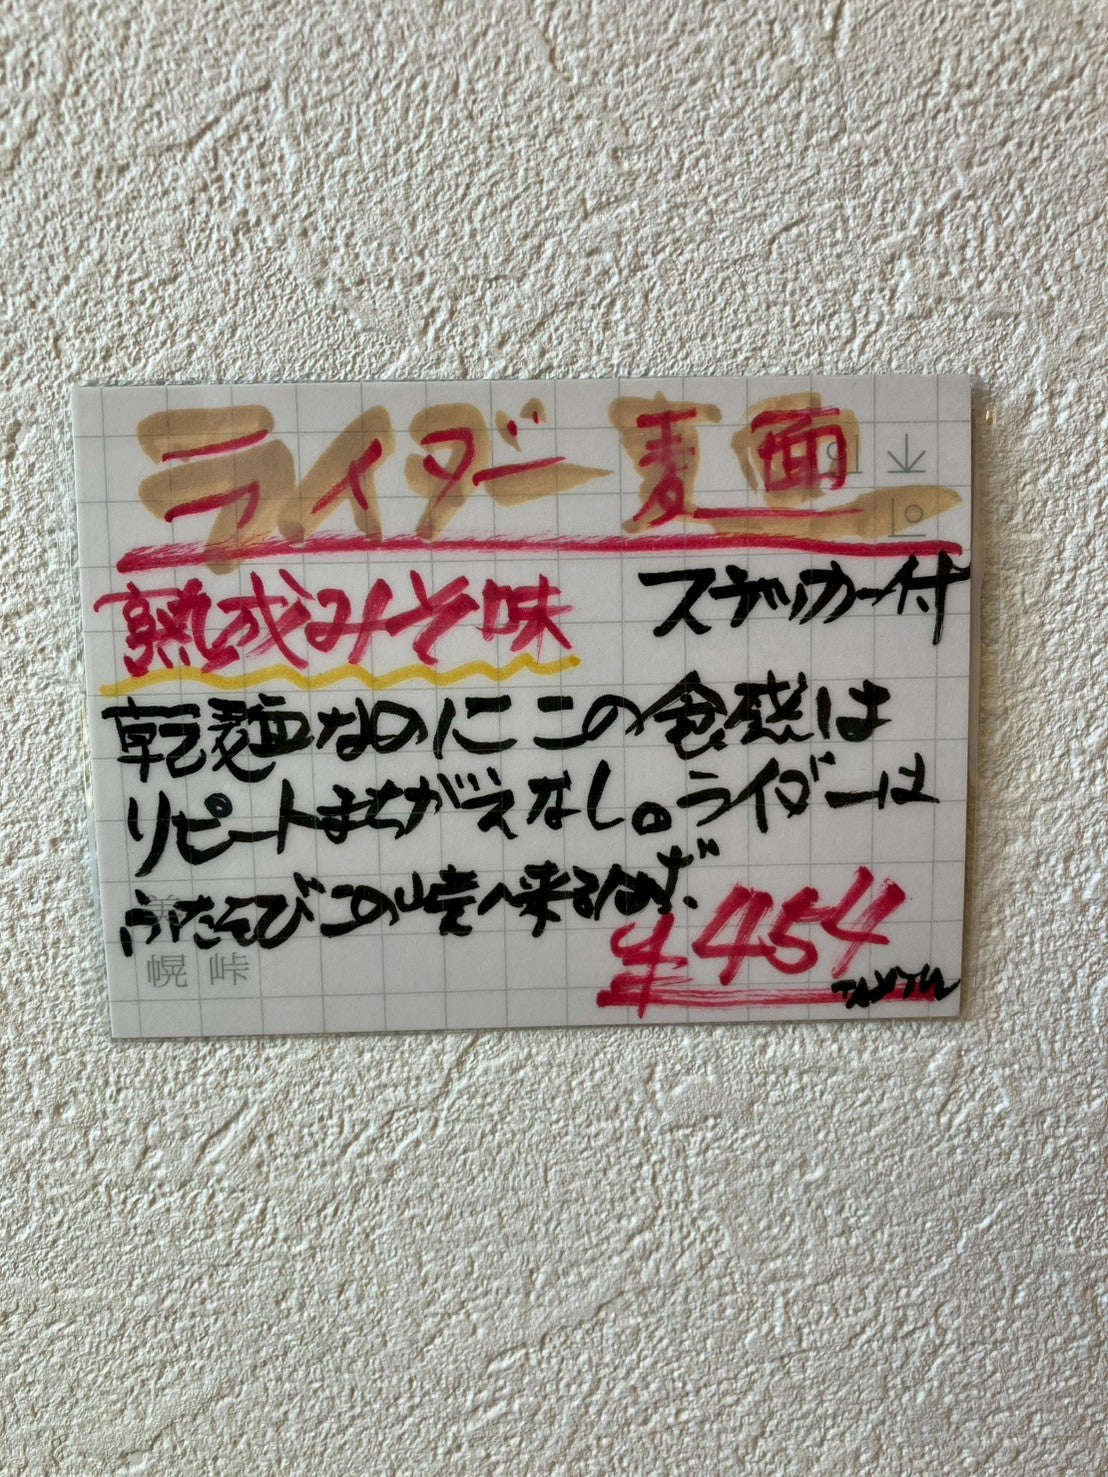 ライダー麺
熟成みそ味 ステッカー付
乾麺なのにこの食感は
リピートまちがえなし。ライダーは
ふたたびこの峠へ来るはず。
¥454
美
幌 峠